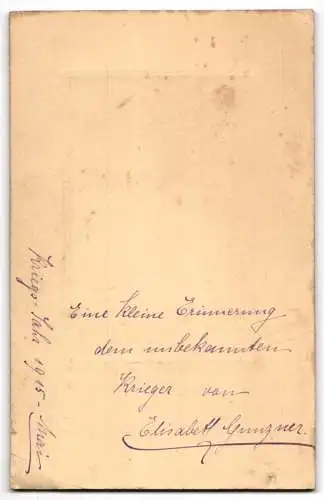 Eine kleine Erinnerung
dem unbekannten
Krieger von
Elisabeth Gunzner.
Kriegs-Jahr 1915 - Mai